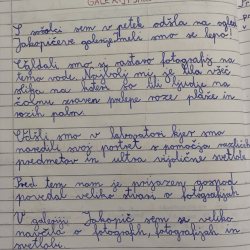 S sošolci sem v petek odšla na ogled
Jakopičeve galerije. Imeli smo se lepo!
Ogledali smo si razstavo fotografij na
temo vode. Najbolj mi je bila všeč
slika na kateri so bili ljudje na
čolnu zraven prelepe roze plaže in
rozih palm.
Odšli smo v laboratorij kjer smo
naredili svoj portret s pomočjo različnih
predmetov in ultra vijolične svetlobe
Pred tem nam je prijazen gospod
povedal veliko stvari o fotografijah
V galeriji Jakopič sem se veliko
naučila o fotografih, fotografijah in
svetlobi.